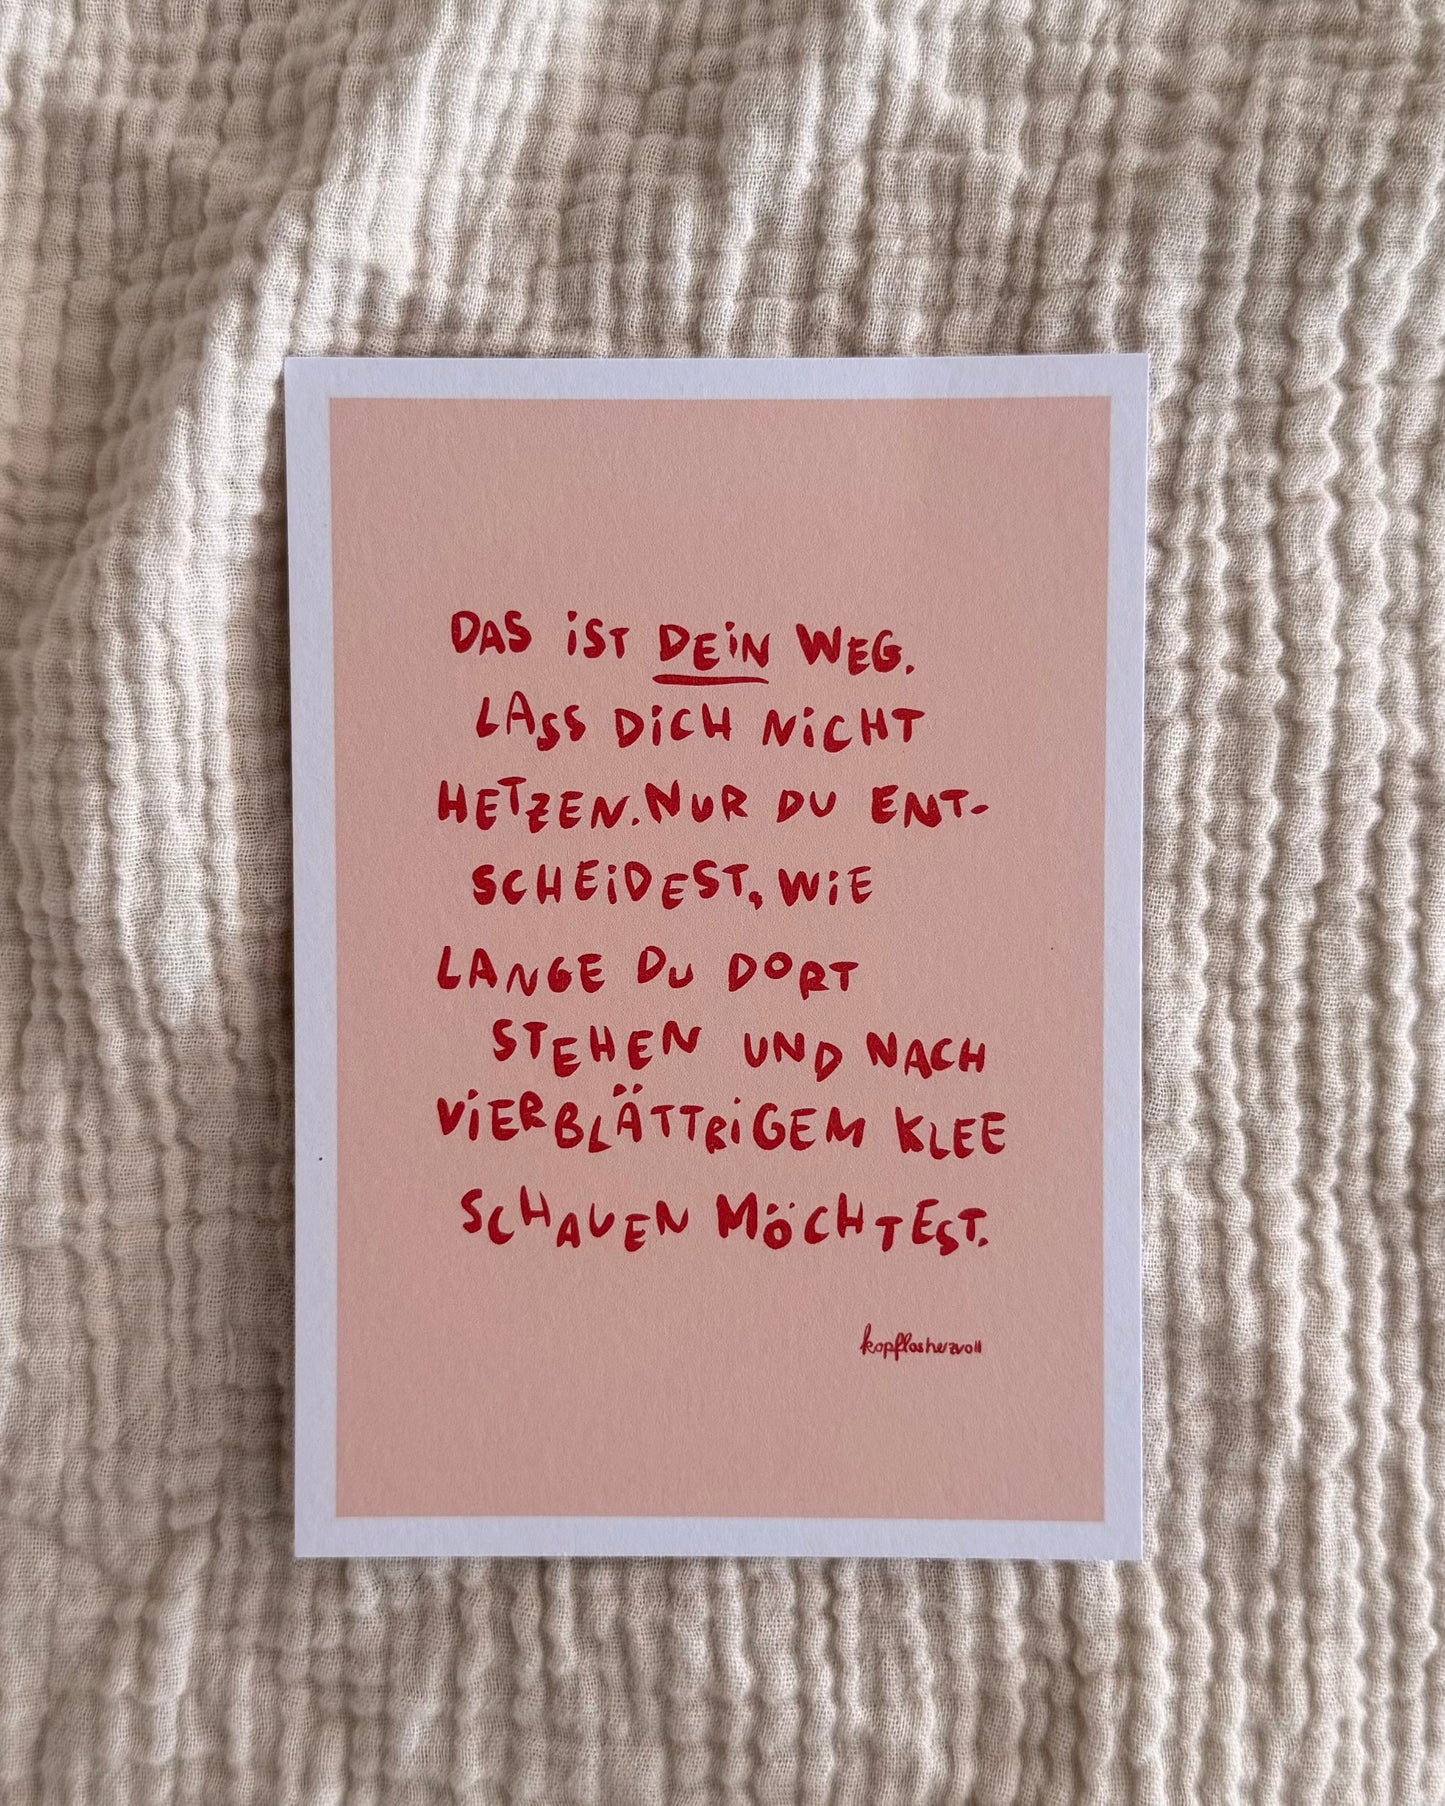 DAS iST DEiN WEG.
LASS DiCH NiCHT
HETZEN. NUR DU ENT-
SCHEiDEST, WiE
LANGE DU DORT
STEHEN UND NACH
ViERBLÄTTRiGEM KLEE
SCHAUEN MÖCHTEST.
kopflosherzvoll